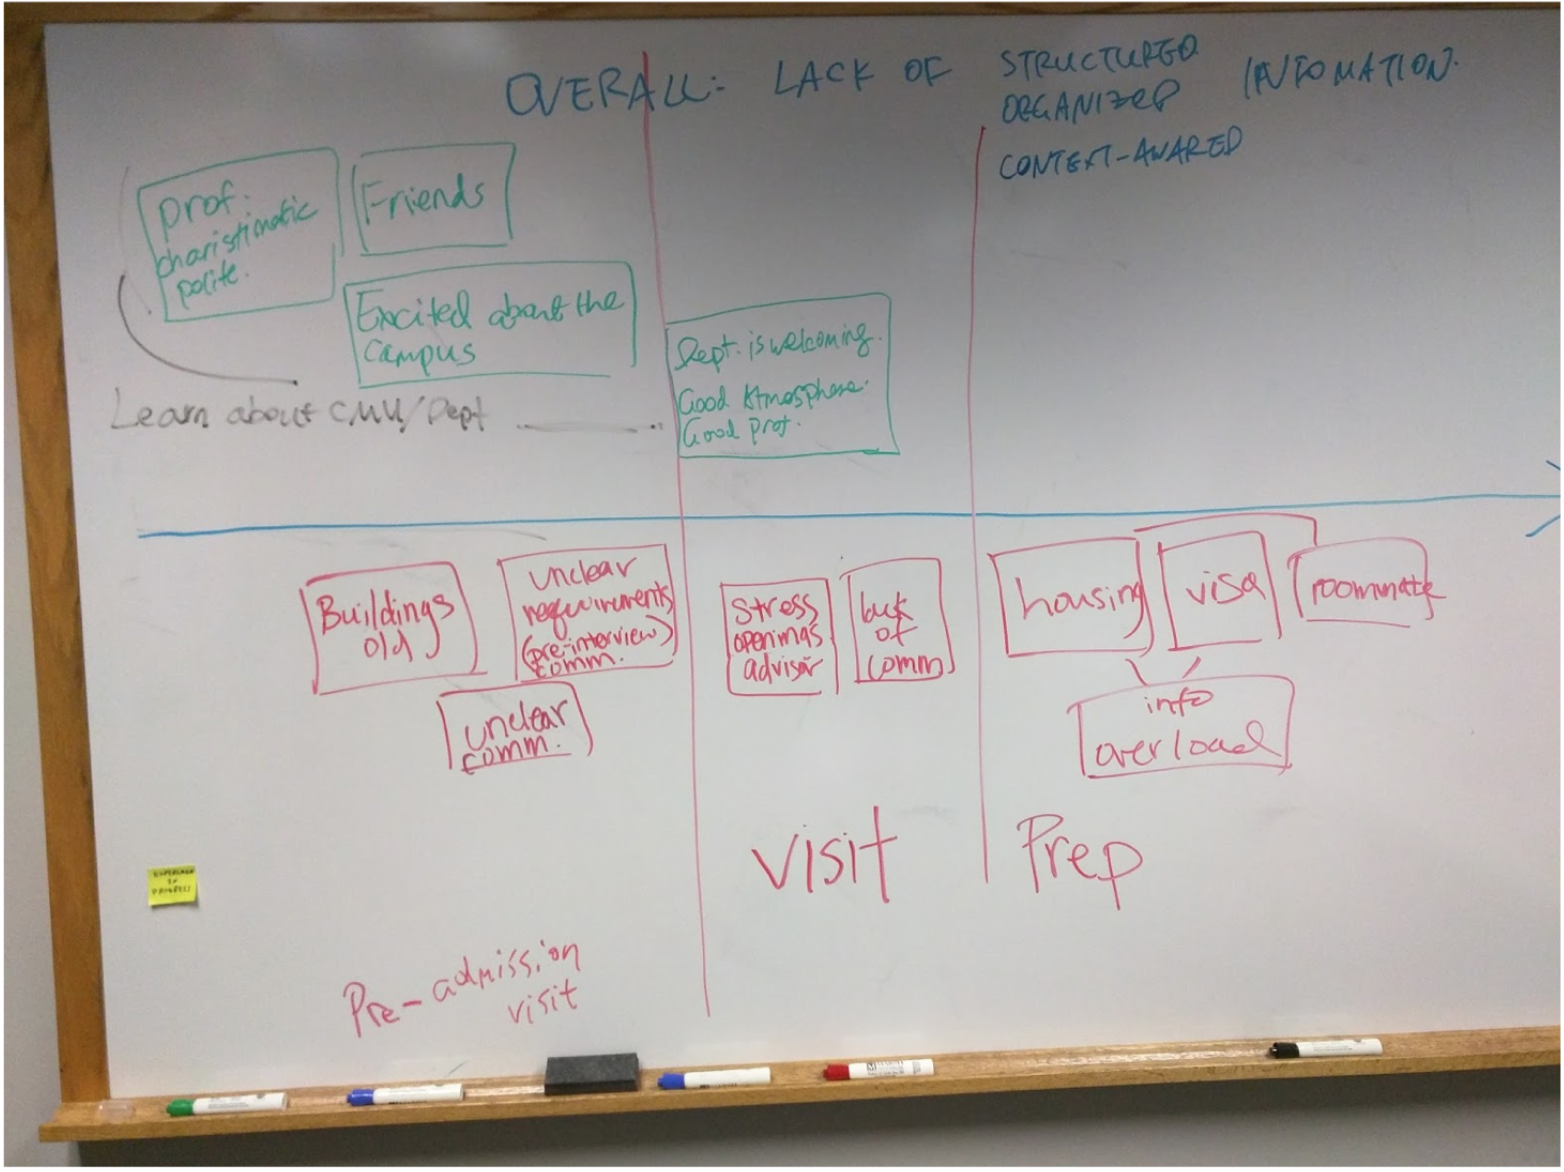 OVERALL: LACK OF
STRUCTURED
ORGANIZED
CONTEXT-AWARED
INFOMATION.
prof.
charistimatic
polite.
Friends
Excited about the
campus
Learn about CMU/Dept
Dept. is welcoming.
Good Atmosphere.
Good prof.
Buildings
old
unclear
requuirements
(pre-interview)
comm.
unclear
comm.
Stress
openings
advisor
lack
of
comm
housing
visa
roommate
info
overload
visit
Prep
Pre-admission
visit
IN
PROGRESS